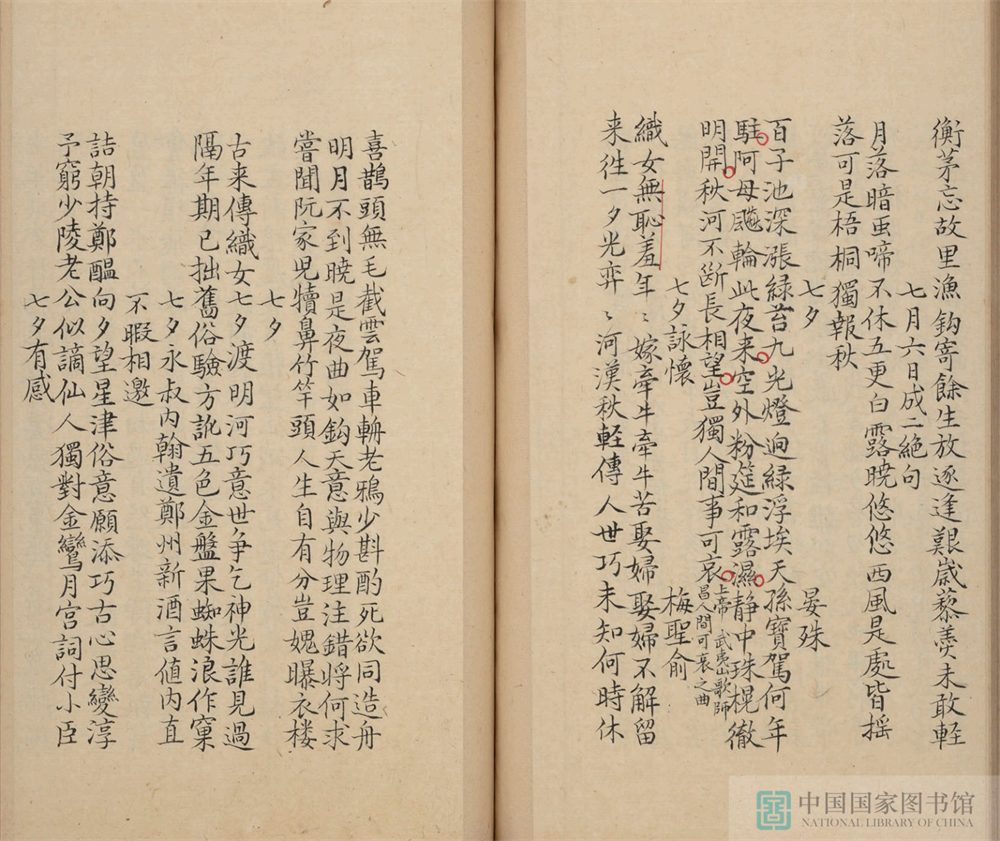 衡茅忘故里漁鈎寄餘生放逐逢艱歲藜羮未敢輕
七月六日成二絶句
月落暗虫啼不休五更白露暁悠悠西風是處皆揺
落可是梧桐獨報秋
七夕 晏殊
百子池深漲緑苔九光燈逈緑浮埃天孫寶駕何年
駐阿母飈輪此夜来空外粉筵和露濕静中珠榥徹
明開秋河不斷長相望豈獨人間事可哀上帝武夷山歌師昌人間可哀之曲
七夕詠懷 梅聖俞
織女無恥羞年〻嫁牽牛牽牛苦娶婦娶婦不解留
来徃一夕光弈〻河漢秋軽傳人世巧未知何時休
喜鵲頭無毛截雲駕車輈老鴉少斟酌死欲同造舟
明月不到暁是夜曲如鈎天意與物理注錯將何求
嘗聞阮家児犢鼻竹竿頭人生自有分豈媿曝衣楼
七夕
古来傳織女七夕渡明河巧意世争乞神光誰見過
隔年期已拙舊俗驗方訛五色金盤果蜘蛛浪作窠
七夕永叔内翰遺鄭州新酒言值内直
不暇相邀
詰朝持鄭醖向夕望星津俗意願添巧古心思變淳
予窮少陵老公似謫仙人獨對金鸞月宫詞付小臣
七夕有感
中国国家图书馆
NATIONAL LIBRARY OF CHINA